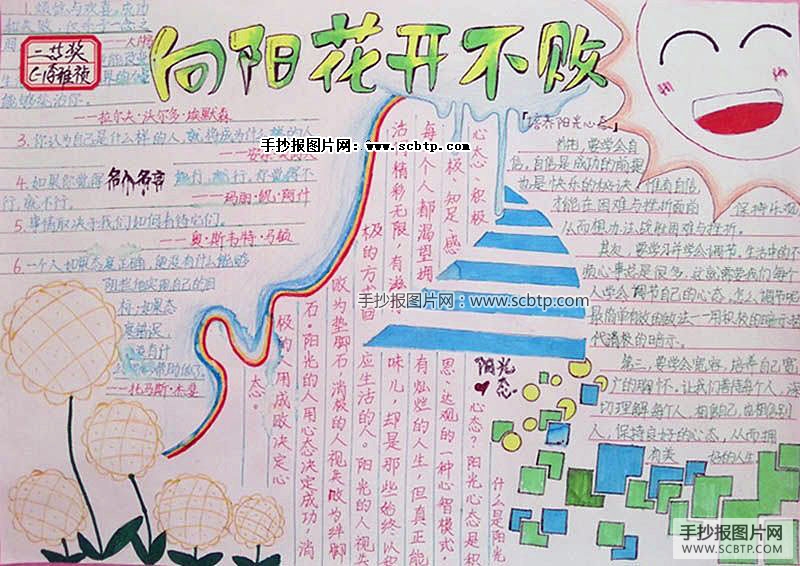 向阳花开不败
二等奖
手抄报图片网：www.scbtp.com
1.
---拉尔夫·沃尔多·埃默森
3.你认为自己是什么样的人,就将成为什么样的人
4.如果你觉得
名人名言
行,就不行。
---玛丽·凯·阿什
5.事情取决于我们如何看待它们。
---奥·斯韦特·马顿
6.一个人如果态度正确,便没有什么能够
阻拦他实现自己的目
标,如果态
度错误,
没有什
帮助他了
---托马斯·杰斐
「培养阳光心态」
首先,要学会自
信,自信是成功的前提
也是快乐的秘诀。惟有自信,
才能在困难与挫折面前
保持乐观
从而想办法战胜困难与挫折。
其次,要学习并学会调节。生活中的不
顺心事总是很多,这就需要我们每个
人学会调节自己的心态。怎么调节呢
最简单有效的做法---用积极的暗示替
代消极的暗示。
第三,要学会宽容,培养自己宽
广的胸怀。让我们善待每个人,深
切理解每个人,相信自己,也相信别
人,保持良好的心态,从而拥
有美
好的人生
阳光
心态
什么是阳光
心态?阳光心态是积
极、知足、感
思、达观的一种心智模式。
每一个人都渴望拥
有灿烂的人生,但真正能
活得精彩无限,有滋有
味儿,却是那些始终以积
极的方式回
应生活的人。阳光的人视失
败为垫脚石,消极的人视失败为绊脚
石。阳光的人用心态决定成功,消
极的人用成败决定心
态。
手抄报图片网：www.scbtp.com
手抄报图片网
WWW.SCBTP.COM